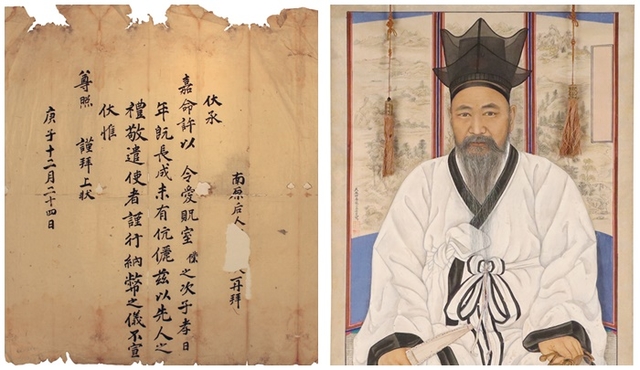 南原后人 再拜
伏承
嘉命許以 令愛貺室 僕之次子孝日
年旣長成未有伉儷玆以先人之
禮敬遣使者謹行納幣之儀不宣
伏惟
尊照 謹拜上狀
庚子十二月二十四日